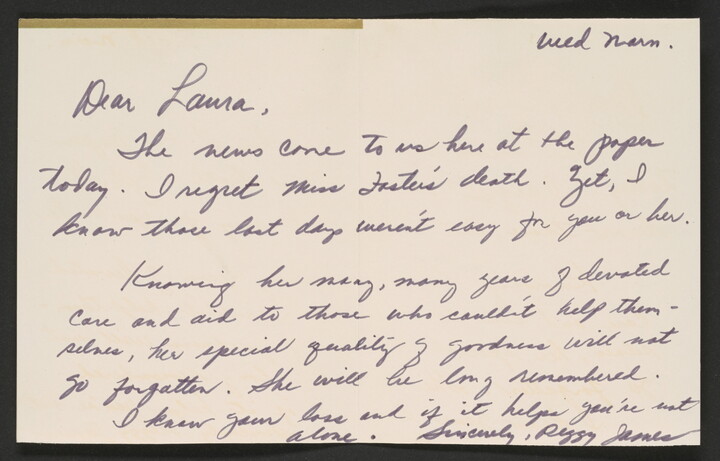 Wed Morn.
Dear Laura,
The news come to us here at the paper
today. I regret Miss Foster's death. Yet, I
know those last days weren't easy for you or her.
Knowing her many, many years of devoted
care and aid to those who couldn't help them-
selves, her special quality of goodness will not
go forgotten. She will be long remembered.
I know your loss and if it helps you're not
alone. Sincerely, Peggy James